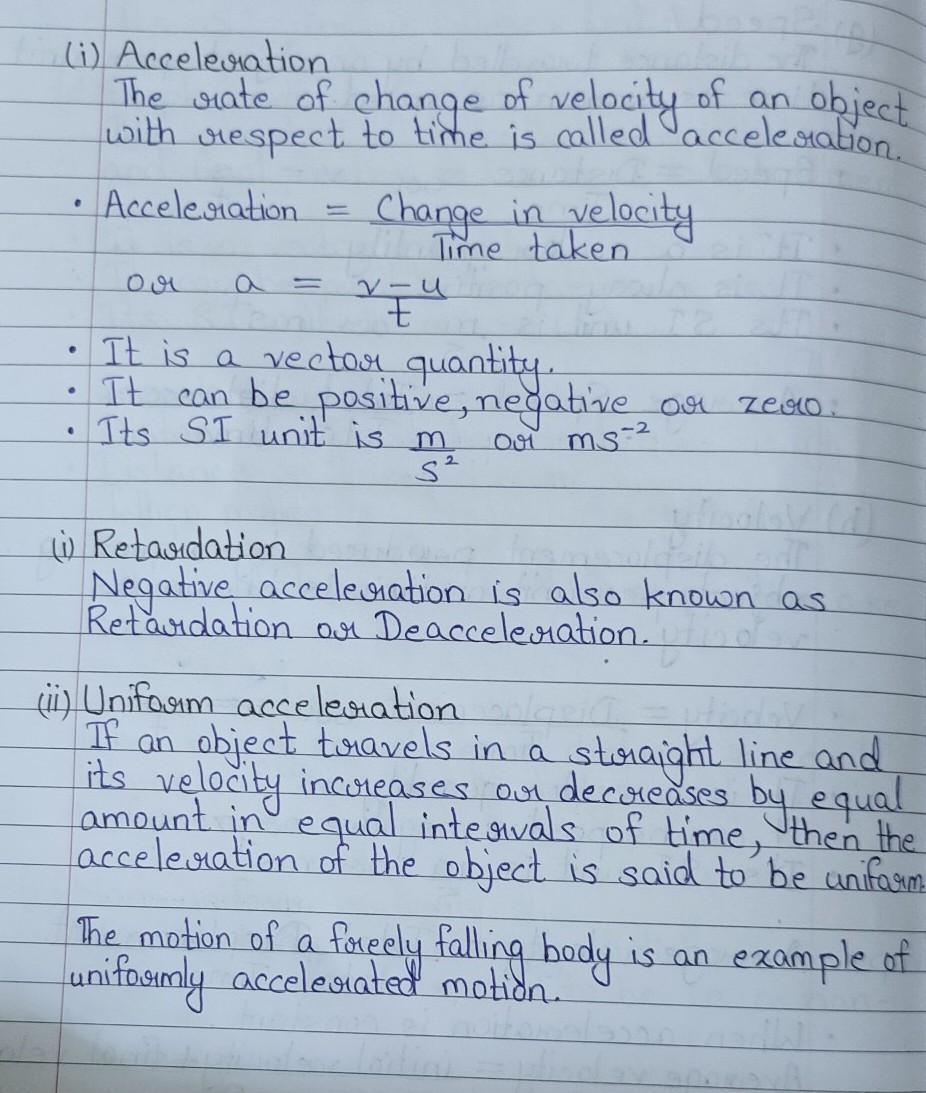 (i) Acceleration
The rate of change of velocity of an object
with respect to time is called acceleration.
• Acceleration = Change in velocity
Time taken
or a = v - u
t
• It is a vector quantity.
• It can be positive, negative or zero.
• Its SI unit is m or ms⁻²
s²
(i) Retardation
Negative acceleration is also known as
Retardation or Deacceleration.
(ii) Uniform acceleration
If an object travels in a straight line and
its velocity increases or decreases by equal
amount in equal intervals of time, then the
acceleration of the object is said to be uniform.
The motion of a freely falling body is an example of
uniformly accelerated motion.